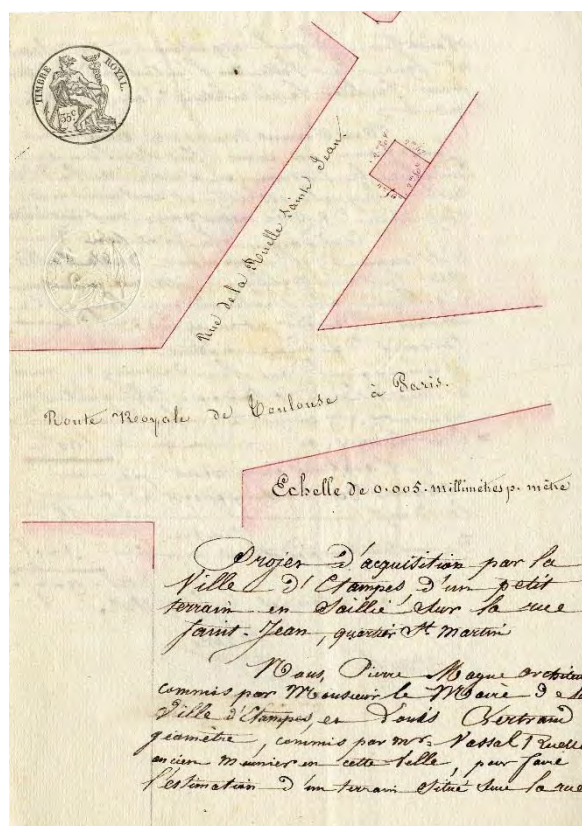 TIMBRE ROYAL.
35 c
Rue de la Ruelle Saint Jean.
Route Royale de Toulouse à Paris.
Echelle de 0.005. millimètres p. mètre
Projet d'acquisition par la
Ville d'Etampes, d'un petit
terrain en Saillie, sur la rue
saint-Jean, quartier St. Martin
Nous, Pierre Magne architecte
commis par Monsieur le Maire de la
Ville d'Etampes, et Louis Bertrand
géomètre, commis par mr. Vassal Ruelle
ancien meunier en cette Ville, pour faire
l'estimation d'un terrain Situé Sur la rue